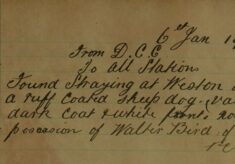 6th Jan 1
From D.C.E
To All Stations
Found Straying at Weston
a ruff Coated Shep dog, va
dark Coat & white front, no
possession of Walter Bird, of